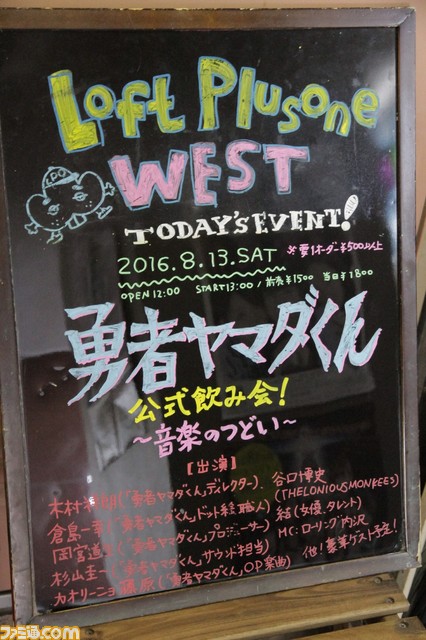 Loft Plusone
WEST
LPO
TODAY'S EVENT!
2016.8.13.SAT ※要1オーダー¥500以上
OPEN 12:00 START 13:00 / 前売¥1500 当日¥1800
勇者ヤマダくん
公式飲み会!
~音楽のつどい~
【出演】
木村祥朗(「勇者ヤマダくん」ディレクター)、谷口博史
倉島一幸(「勇者ヤマダくん」ドット絵職人) (THELONIOUSMONKEES)
岡宮道生(「勇者ヤマダくん」プロデューサー) 結(女優、タレント)
杉山圭一(「勇者ヤマダくん」サウンド担当) MC:ローリング内沢
カオリーニョ藤原(「勇者ヤマダくん」OP楽曲) 他!豪華ゲスト予定!
ファミ通.com